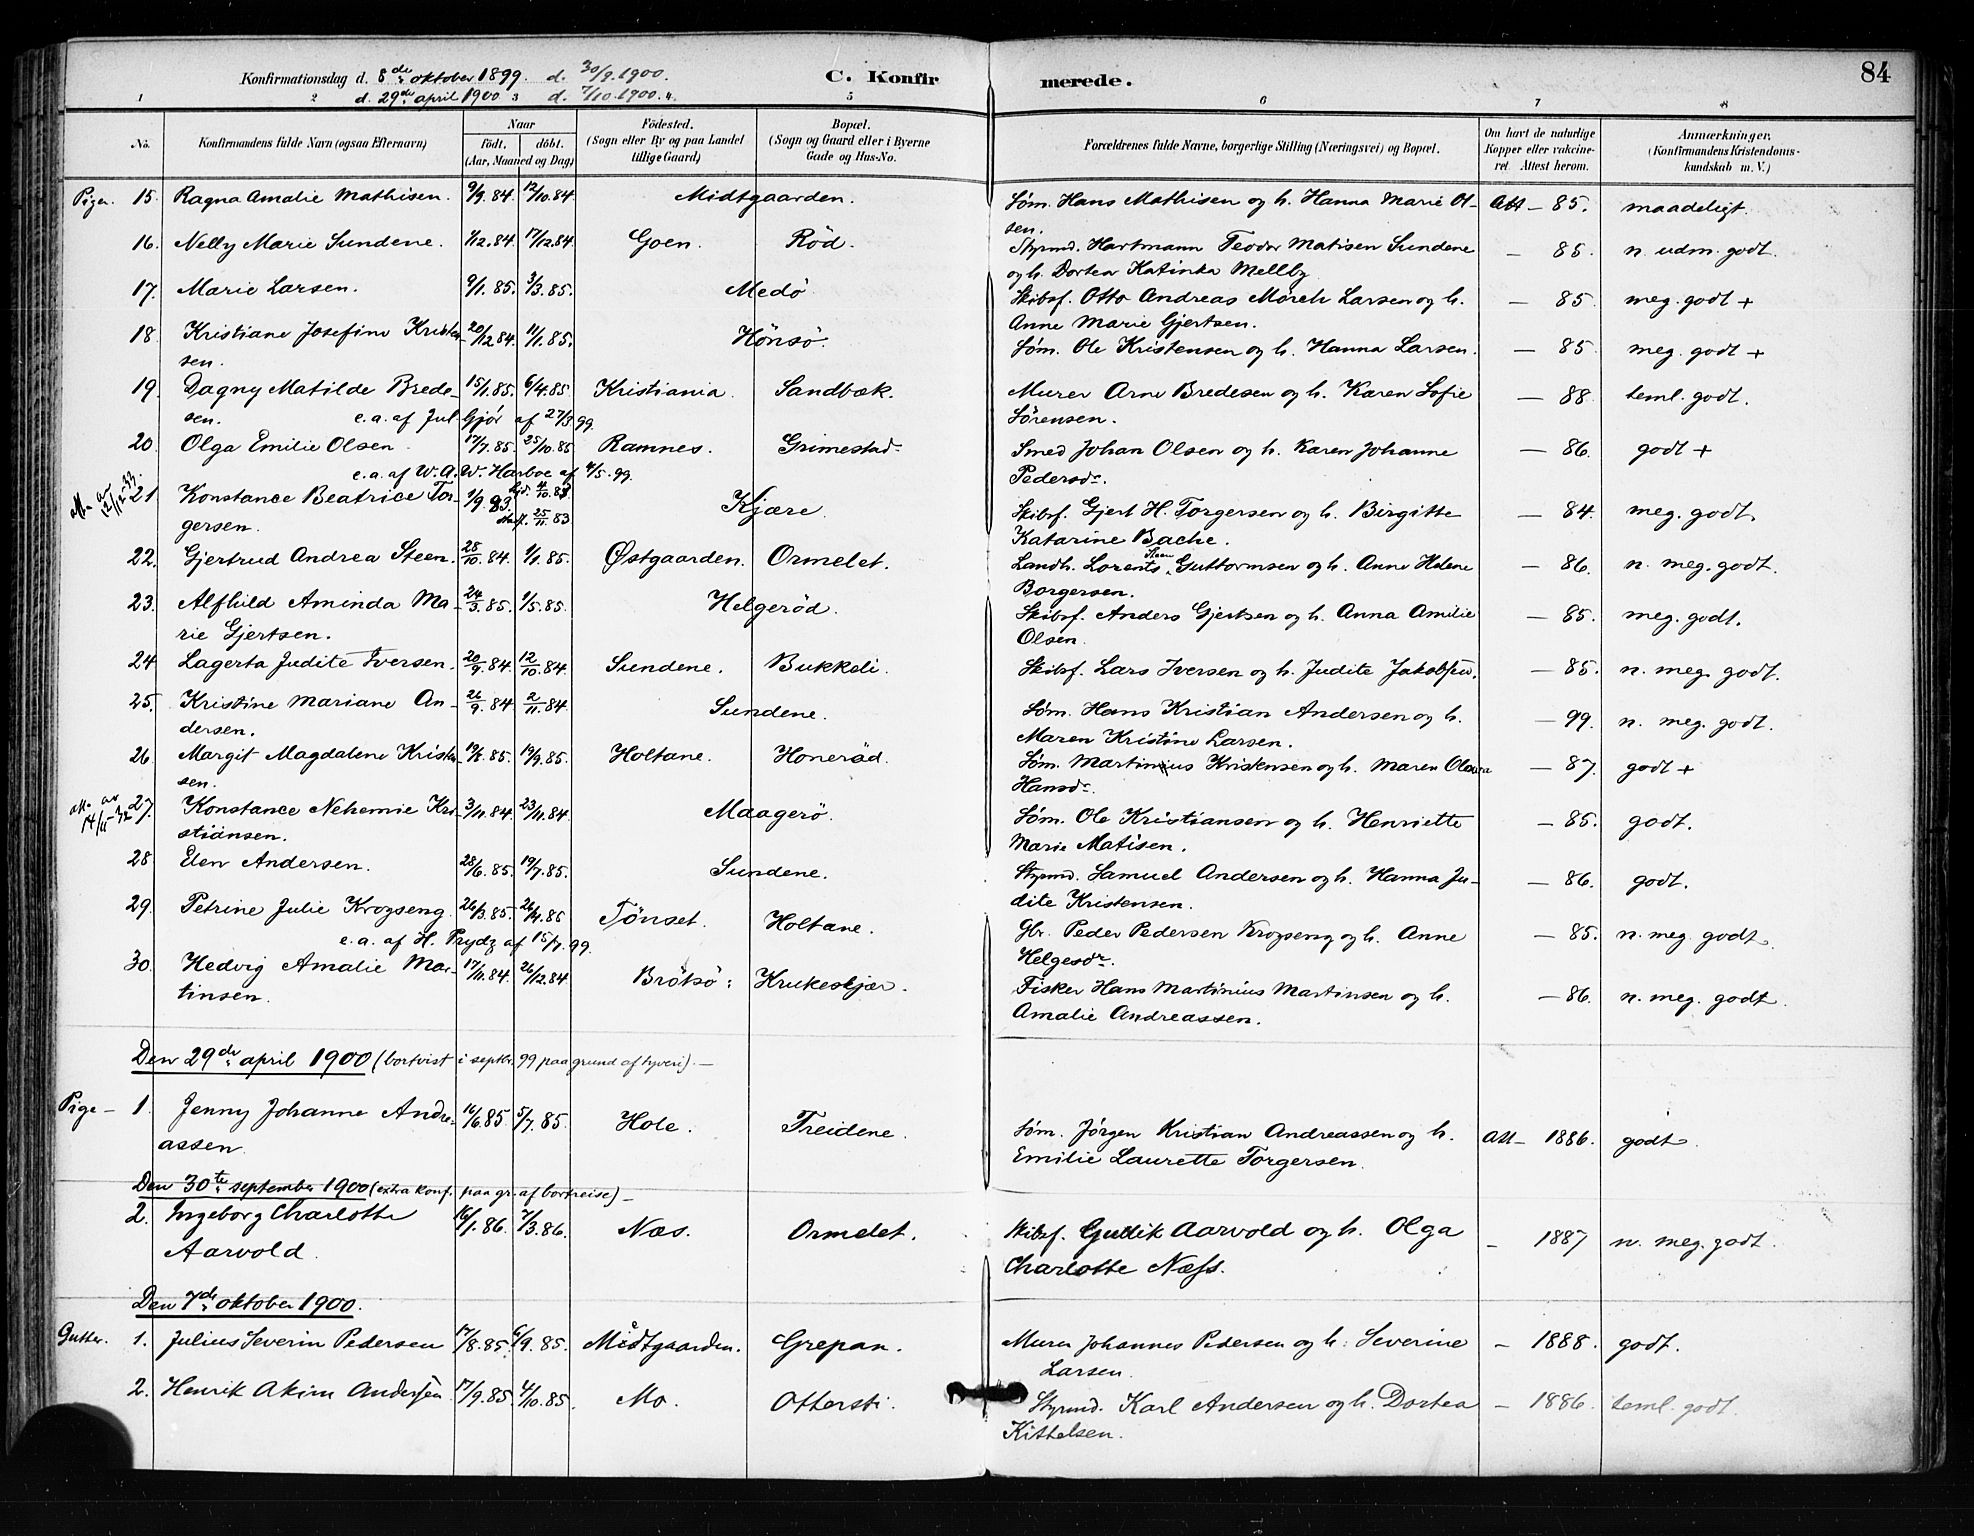 Konfirmationsdag d. 8de oktober 1899. d. 30/9.1900. C. Konfirmerede. 84
d. 29de april 1900 d. 7/10.1900.
1 2 3 4. 5 6 7 8
No. Konfirmandens fulde Navn (ogsaa Efternavn) Naar født, døbt. (Aar, Maaned og Dag) Födested. (Sogn eller By og paa Landet tillige Gaard) Bopæl. (Sogn og Gaard eller i Byerne Gade og Hus-No. Forældrenes fulde Navne, borgerlige Stilling (Næringsvei) og Bopæl. Om havt de naturlige Kopper eller vakcineret. Attest herom. Anmærkninger, (Konfirmandens Kristendomskundskab m. V.)
Piger. 15. Ragna Amalie Mathisen. 9/9.84. 12/10.84. Midtgaarden. Søm. Hans Mathisen og h. Hanna Marie Ol- Att – 85. maadeligt.
sen.
16. Nelly Marie Sundene. 1/12.84. 17/12.84. Goen. Rød. Styrmd. Hartmann Teodor Matisen Sundene – 85. n. udm. godt.
og h. Dortea Katinka Mellby
17. Marie Larsen. 9/1.85. 3/3.85. Medø Skibsf. Otto Andreas Mørch Larsen og h. – 85. meg. godt +
Anne Marie Gjertsen.
18. Kristiane Josefine Kristen- 20/12.84. 11/1.85. Hønsø. Søm. Ole Kristensen og h. Hanna Larsen. – 85. meg. godt +
sen.
19. Dagny Matilde Brede- 15/1.85. 6/4.85 Kristiania. Sandbæk. Murer Arne Bredesen og h. Karen Sofie – 88. teml. godt.
sen. e.a. af Jul. Gjør af 27/3 99. Sørensen.
20. Olga Emilie Olsen. 17/7.85. 25/10.85 Ramnes. Grimestad. Smed Johan Olsen og h. Karen Johanne – 86. godt +
e.a. af W. A. W. Harboe af 4/5.99. Pedersdr.
21. Konstance Beatrice Tor- 1/9 83. 4/10.83 Kjære. Skibsf. Gjert H. Torgersen og h. Birgitte – 84. meg. godt.
gersen. 25/11 83 Katarine Bache.
22. Gjertrud Andrea Steen. 28/10.84. 1/1.85. Østgaarden. Ormelet. Landh. Lorents Steen Guttormsen og h. Anne Helene – 86. n. meg. godt.
Borgersen.
23. Alfhild Aminda Ma- 24/3.85. 1/5.85. Helgerød. Skibsf. Anders Gjertsen og h. Anna Amilie – 85. meg. godt.
rie Gjertsen. Olsen.
24. Lagerta Judite Iversen. 20/9.84. 12/10.84. Sundene. Bukkeli. Skibsf. Lars Iversen og h. Judite Jakobsen. – 85. n. meg. godt.
25. Kristine Mariane An- 26/9.84. 2/11.84. Sundene. Søm. Hans Kristian Andersen og h. – 99. n. meg. godt.
dersen. Maren Kristine Larsen.
26. Margit Magdalene Kristen- 19/8.85. 19/9.85. Holtane. Honerød. Søm. Martinius Kristensen og h. Maren Olava – 87. godt +
sen. Hansdr.
14/11-32 27. Konstance Nehemie Kri- 3/11.84. 23/11.84. Maagerø. Søm. Ole Kristiansen og h. Henriette – 85. godt.
stiansen. Marie Matisen.
28. Elen Andersen. 28/6.85. 19/7.85. Sundene. Styrmd. Samuel Andersen og h. Hanna Ju- – 86. godt.
dite Kristensen.
29. Petrine Julie Krogseng. 26/3.85. 26/4.85 Tønset. Holtane. Gbr. Peder Pedersen Krogseng og h. Anne – 85. n. meg. godt.
e.a. af H. Prydz af 15/7.99. Helgesdr.
30. Hedvig Amalie Mar- 17/11.84. 26/12.84 Brøtsø: Krukeskjær. Fisker Hans Martinius Martinsen og h. – 86. n. meg. godt.
tinsen. Amalie Andreassen.
Den 29de april 1900 (bortvist i septbr. 99 paa grund af tyveri). –
Pige – 1. Jenny Johanne Andre- 16/6.85. 5/7.85. Hole. Treidene. Søm. Jørgen Kristian Andreassen og h. Att – 1886. godt.
assen. Emilie Laurette Torgersen.
Den 30te september 1900 (extra konf. paa gr. af bortreise) –
2. Ingeborg Charlotte 16/1.86. 7/3.86. Næs. Ormelet. Skibsf. Gullik Aarvold og h. Olga – 1887 n. meg. godt.
Aarvold. Charlotte Næss.
Den 7de oktober 1900.
Gutter. 1. Julius Severin Pedersen 17/8.85. 6/9.85. Midtgaarden. Grepan. Murer Johannes Pedersen og h. Severine – 1888. godt.
Larsen.
2. Henrik Akim Andersen 17/9.85. 4/10.85. Mo. Ottersti. Styrmd. Karl Andersen og h. Dortea – 1886. teml. godt.
Kittelsen.